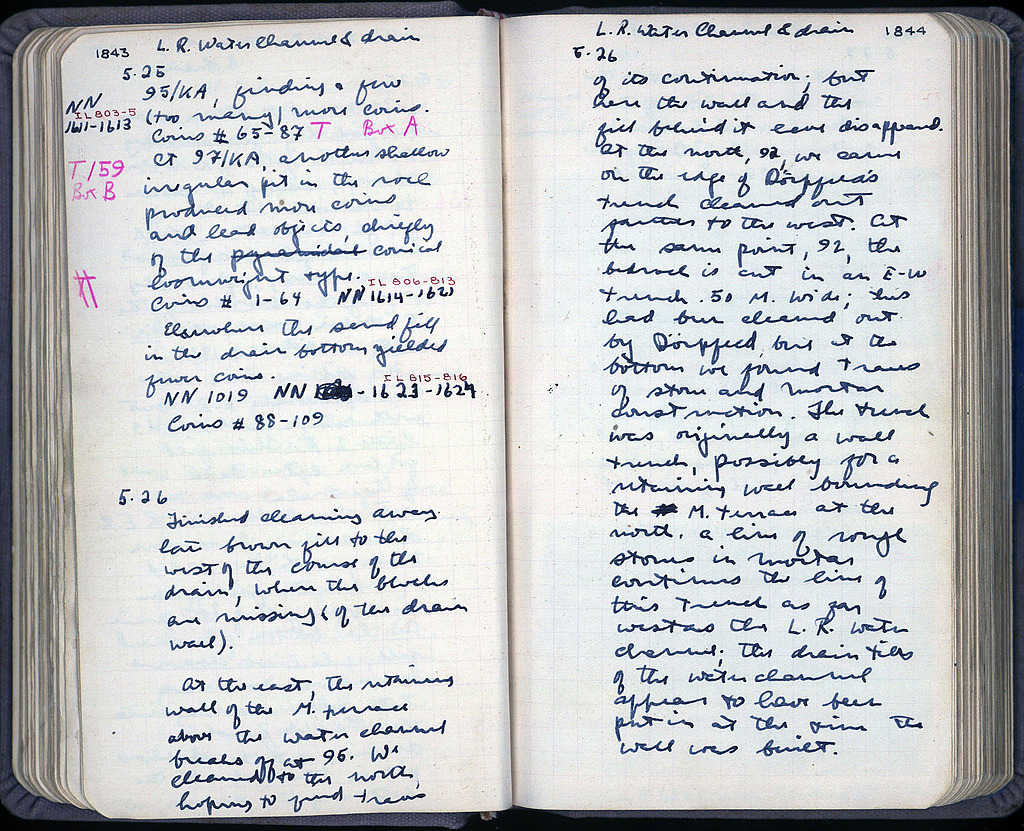 1843 L. R. Water Channel & drain
5.25
95/KA, finding a few
NN IL 803-5 (too many) more coins.
1611-1613 Coins # 65-87 T Box A
At 97/KA, another shallow
T/59 irregular pit in the rock
Box B produced more coins
and lead objects, chiefly
of the pyramidal conical
loomweight type.
IL 806-813
Coins # 1-64 NN 1614-1621
Elsewhere the sand fill
in the drain bottom yielded
fewer coins.
IL 815-816
NN 1019 NN - 1623-1624
Coins # 88-109
5.26
Finished cleaning away
late brown fill to the
west of the course of the
drain, where the blocks
are missing (of the drain
wall).
At the east, the retaining
wall of the M. terrace
above the water channel
breaks off at 96. We
cleaned to the north,
hoping to find traces
L. R. Water Channel & drain 1844
5.26
of its continuation; but
here the wall and the
fill behind it have disappeared.
At the north, 92, we came
on the edge of Dörpfeld's
trench cleared out
to the west. At
the same point, 92, the
bedrock is cut in an E-W
trench .50 M. wide; this
had been cleared out
by Dörpfeld, but at the
bottom we found traces
of stone and mortar
construction. The trench
was originally a wall
trench, possibly for a
retaining wall bounding
the M. terrace at the
north. A line of rough
stones in mortar
continues the line of
this trench as far
west as the L. R. water
channel; the drain tiles
of the water channel
appear to have been
put in at the time the
wall was built.